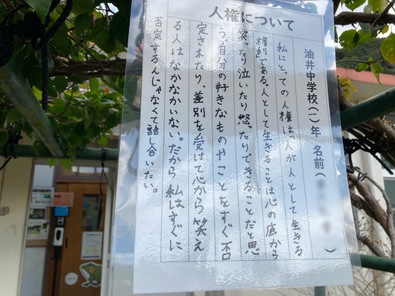 人権について
油井中学校(一)年 名前(
私にとっての人権は、人が人として生きる
権利である。人として生きることは心の底から
笑ったり泣いたり怒ったりできることだと思
う。自分の好きなものやことをすぐ否
定されたり、差別を受けて心から笑え
る人はなかなかいない。だから私はすぐに
否定するんじゃなくて話し合いたい。